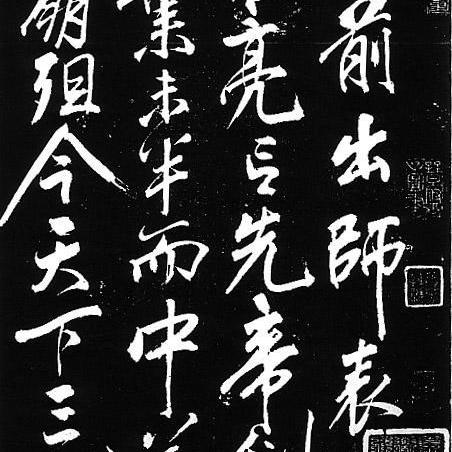 前出師表
亮言先帝創
業未半而中道
崩殂今天下三